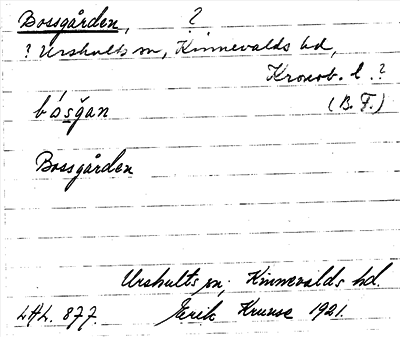 Bossgården, ?
? Urshults sn, Kinnevalds hd,
Kronob. l. ?
bósgan (B.F.)
Bossgården
Urshults sn, Kinnevalds hd.
LAL. 877. Erik Kruuse 1921.